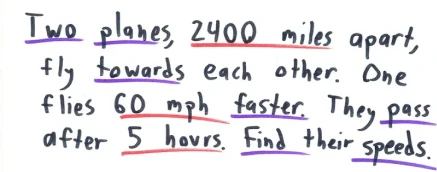 Two planes, 2400 miles apart,
fly towards each other. One
flies 60 mph faster. They pass
after 5 hours. Find their speeds.